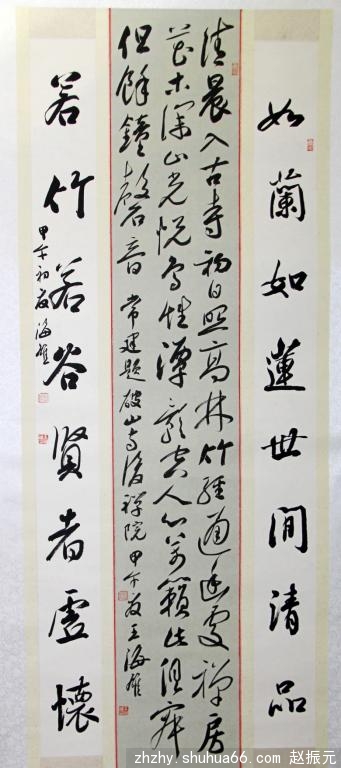 如蘭如蓮世間清品
清晨入古寺初日照高林竹徑通幽處禪房
花木深山光悦鳥性潭影空人心萬籟此俱寂
但餘鐘磬音 常建題破山寺後禪院 甲午夏王海雄
若竹若谷賢者虛懷
甲午初夏海雄
zhzhy.shuhua66.com 赵振元